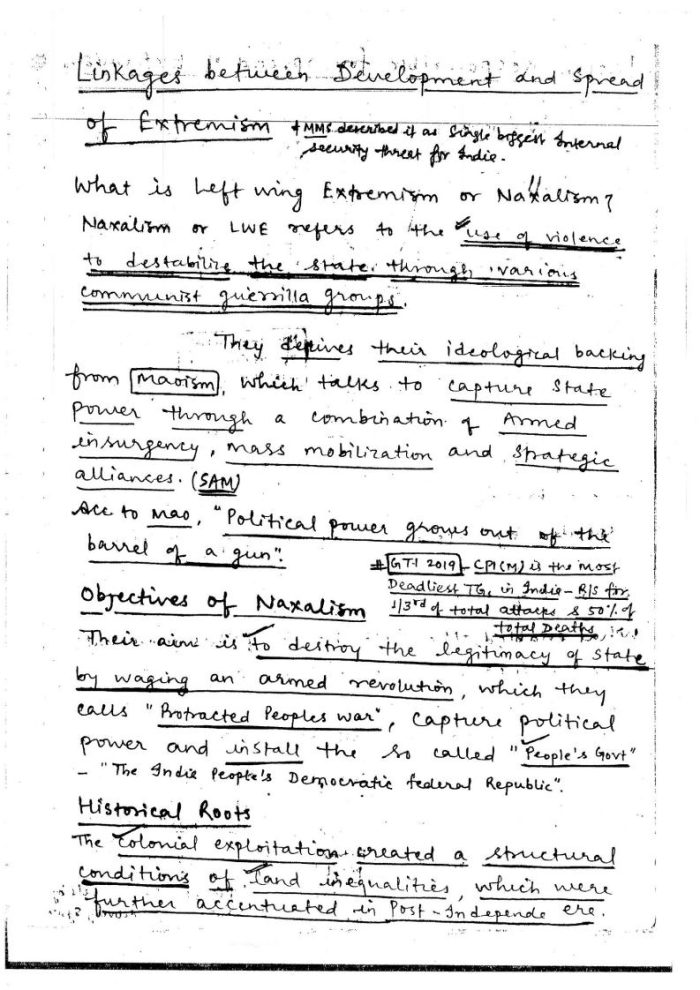 Linkages between Development and Spread
of Extremism
* MMS described it as Single biggest Internal
security threat for India.
What is Left wing Extremism or Naxalism?
Naxalism or LWE refers to the use of violence
to destabilize the state through various
communist guerrilla groups.
They derives their ideological backing
from Maoism, which talks to capture State
power through a combination of Armed
insurgency, mass mobilization and Strategic
alliances. (SAM)
Acc to Mao, "Political power grows out of the
barrel of a gun".
# GTI 2019 - CPI(M) is the most
Deadliest TG. in India - R/S for
1/3rd of total attacks & 50% of
total Deaths
Objectives of Naxalism
Their aim is to destroy the legitimacy of State
by waging an armed revolution, which they
calls "Protracted Peoples war", capture political
power and install the so called "People's Govt"
- "The India People's Democratic federal Republic".
Historical Roots
The colonial exploitation created a structural
conditions of land inequalities, which were
further accentuated in Post-Independe era.